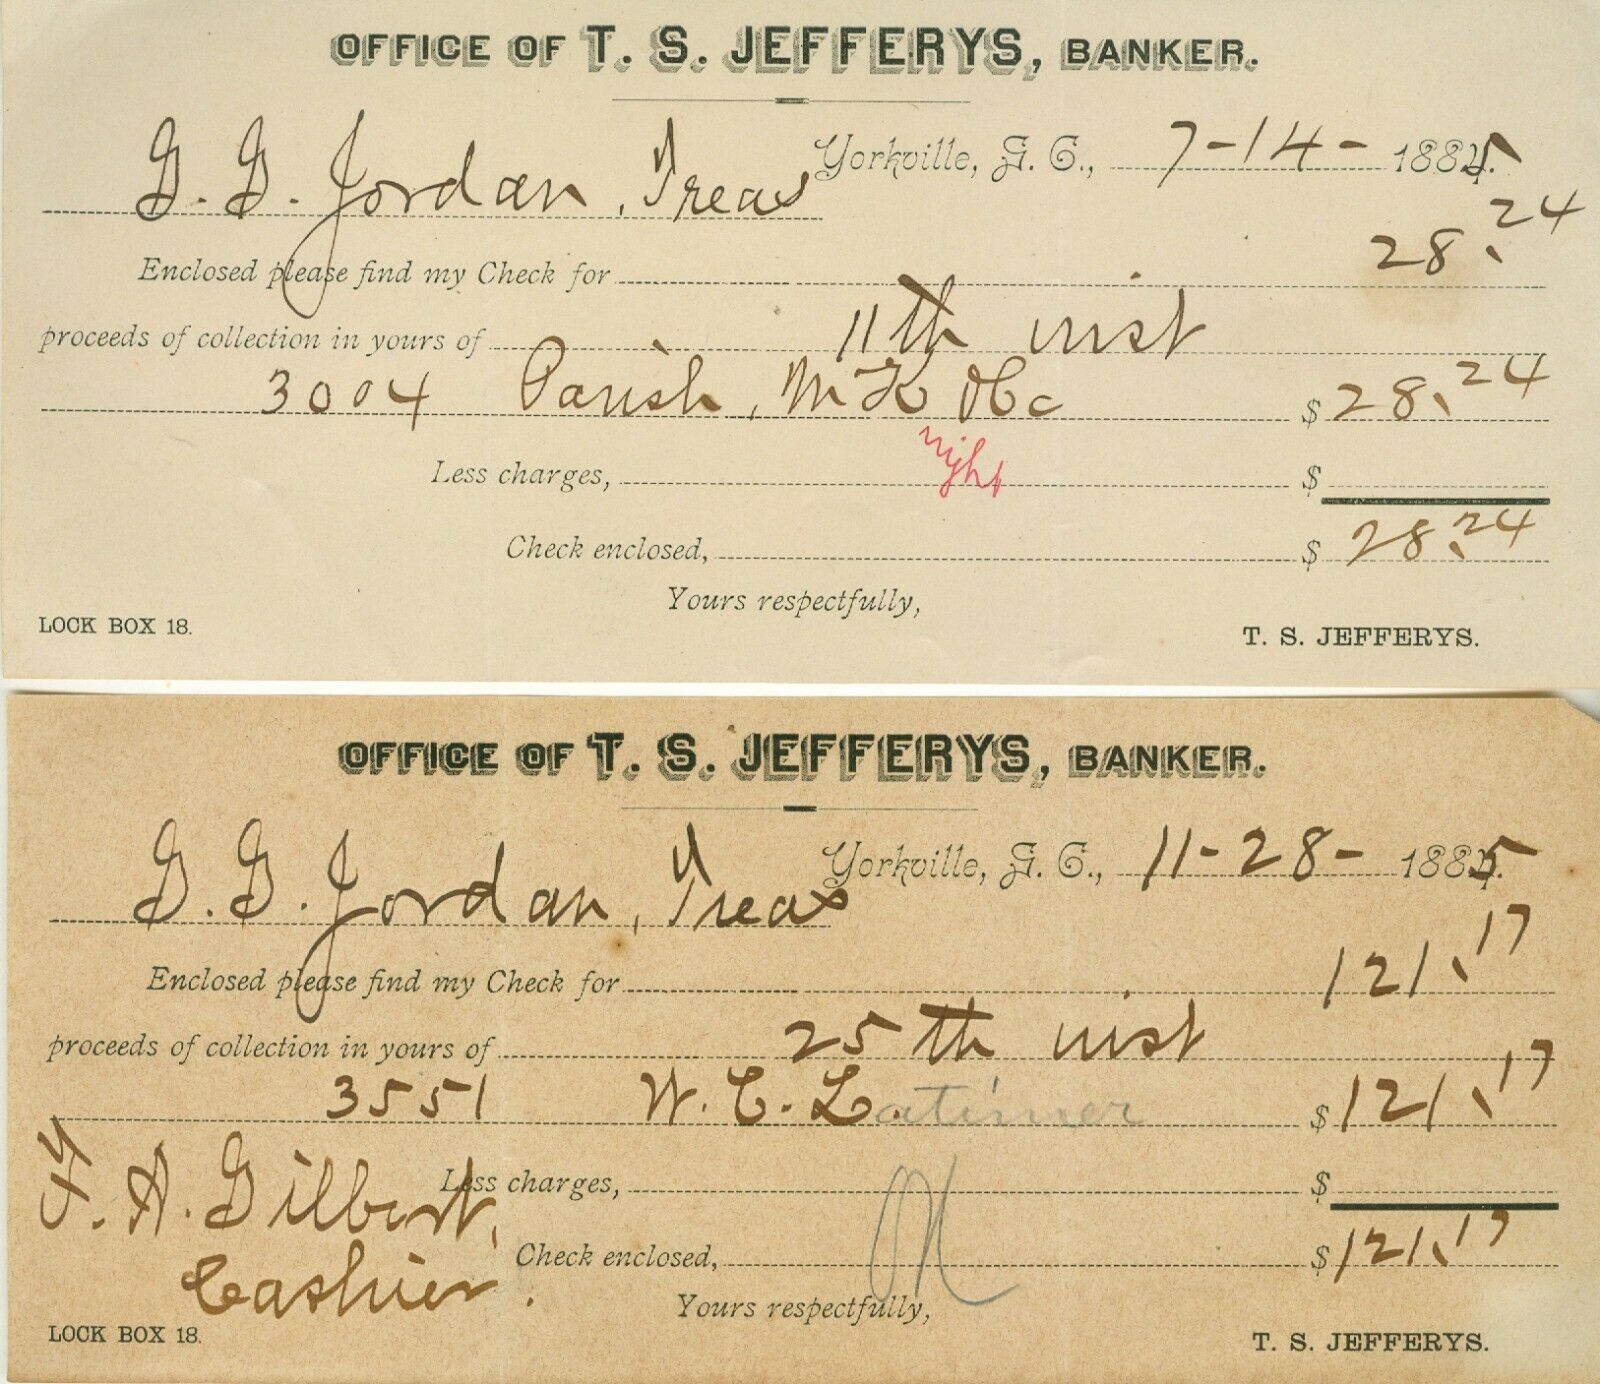 OFFICE OF T. S. JEFFERYS, BANKER.
Yorkville, S. C., 7-14- 1885
G. G. Jordan, Treas
Enclosed please find my Check for 28.24
proceeds of collection in yours of 11th inst
3004 Parish, McK $ 28.24
right
Less charges, $
Check enclosed, $ 28.24
Yours respectfully,
LOCK BOX 18. T. S. JEFFERYS.
OFFICE OF T. S. JEFFERYS, BANKER.
Yorkville, S. C., 11-28- 1885
G. G. Jordan, Treas
Enclosed please find my Check for 121.17
proceeds of collection in yours of 25th inst
3551 W. C. Latimer $ 121.17
Less charges, $
F. A. Gilbert,
Cashier.
Check enclosed, $ 121.17
Yours respectfully,
LOCK BOX 18. T. S. JEFFERYS.